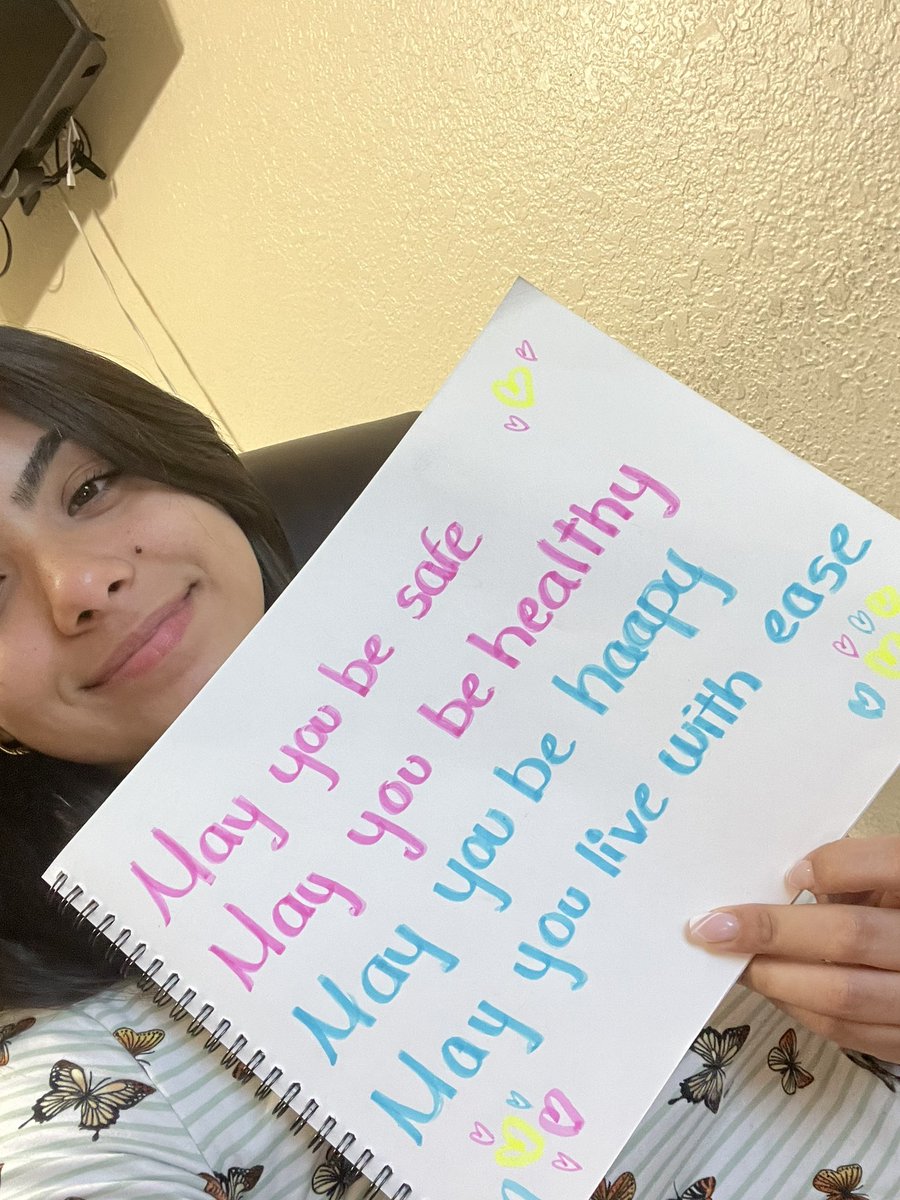 May you be safe
May you be healthy
May you be haapy
May you live with ease